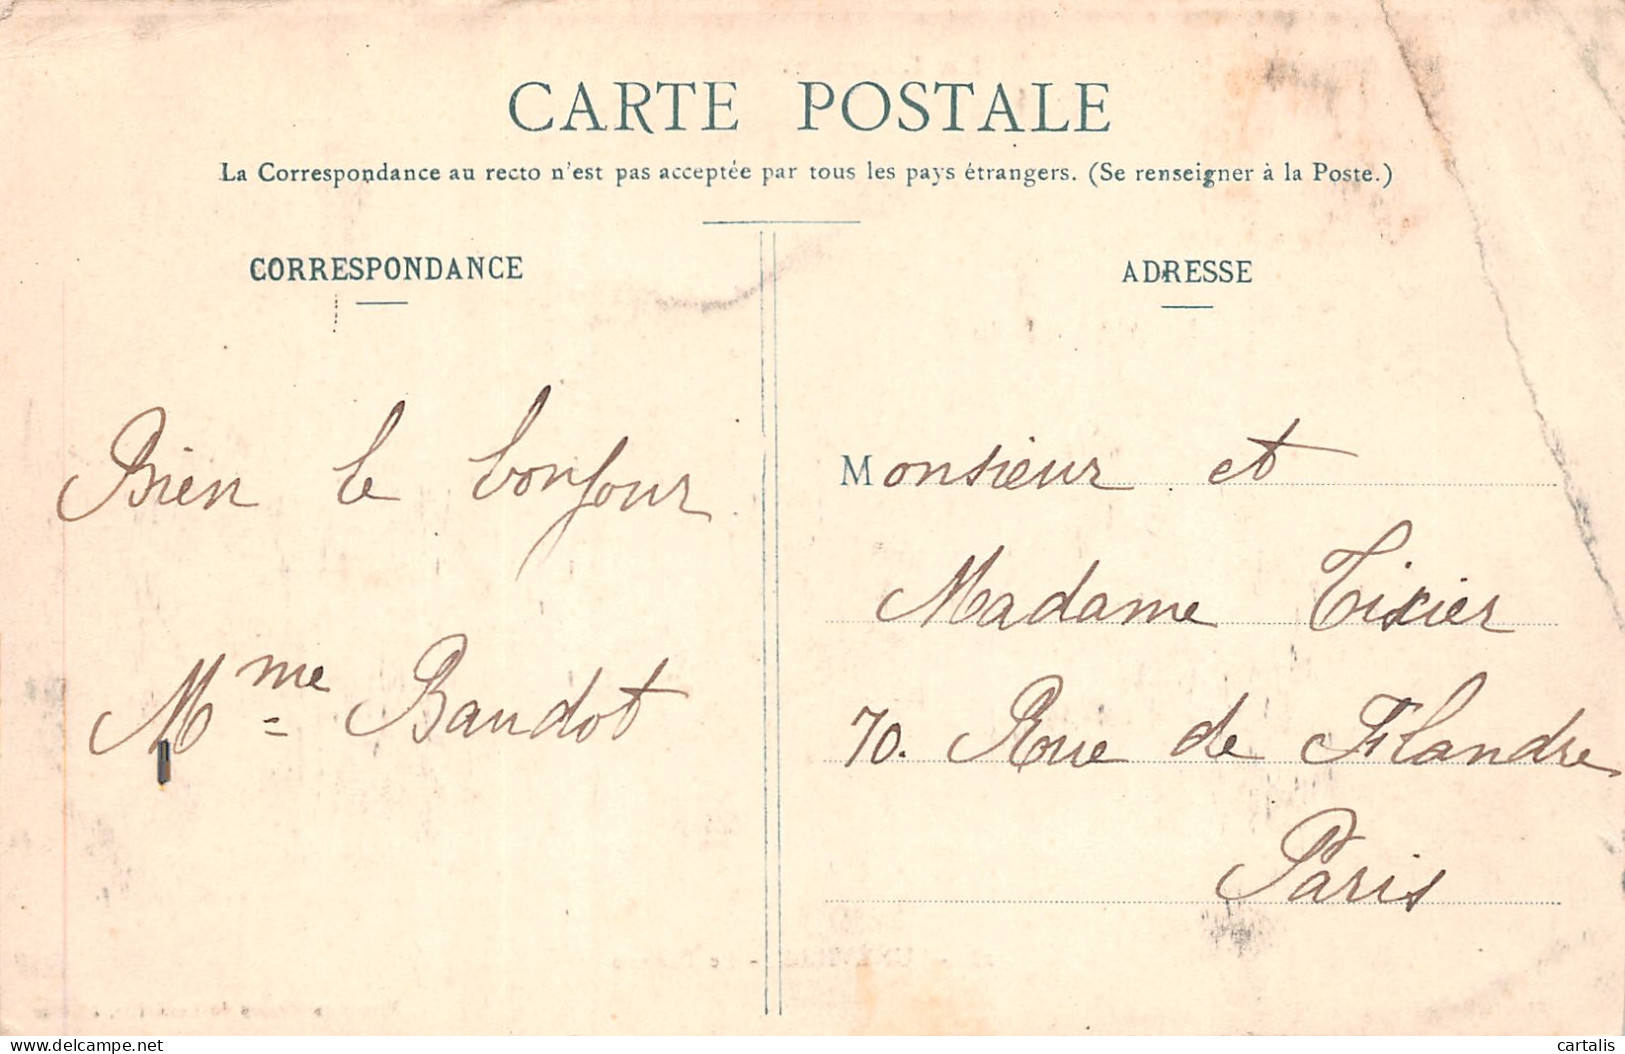 CARTE POSTALE
La Correspondance au recto n'est pas acceptée par tous les pays étrangers. (Se renseigner à la Poste.)
CORRESPONDANCE
Bien le bonjour
Mme Baudot
ADRESSE
Monsieur et
Madame Tixier
70. Rue de Flandre
Paris
www.delcampe.net
cartalis